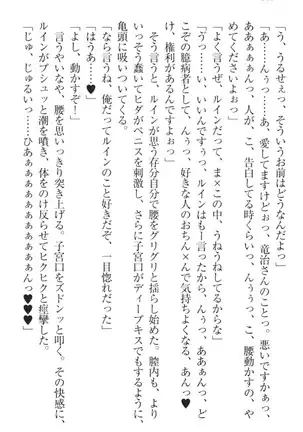 「う、うるせぇっ。そういうお前はどうなんだよ」
「あ、んぅっ……あ、愛してますけどぉっ、竜治さんのこと。悪いですかぁっ、
あああぁぁんっ。人が、こ、告白してる時くらい、んぅっ、こ、腰動かすの、や
めてくださいよぉっ」
「よく言うぜ、ルインだって、ま×この中、うねうねしてるからな」
「うっ……い、いいんですぅっ、ルインは
の臆病者として、んぅっ、好きな人のおち×んで気持ちよくなる、あんっ♥
け、権利があるんですぅっ」
そう言うと、ルインが思う存分自分で腰をグリグリと揺らし始めた。膣内も
いっそう蠢いてヒダがペニスを刺激し、さらに子宮口がディープキスでもするように、
亀頭に吸いついてくる。
「なら言うね、俺だってルインのこと好きだぞ、一目惚れだった」
「はうあぁ……♥」
「よし、動かすぞ！」
言うやいなや、腰を思いっきり突き上げる。子宮口をズドンッと叩く。その快感に、
ルインがブシュッと潮を噴き、体をのけ反らせてヒクヒクと痙攣した。
「じゅ、じゅるいっ……ひあぁぁぁぁぁぁぁぁぁぁぁぁんっ♥♥♥」